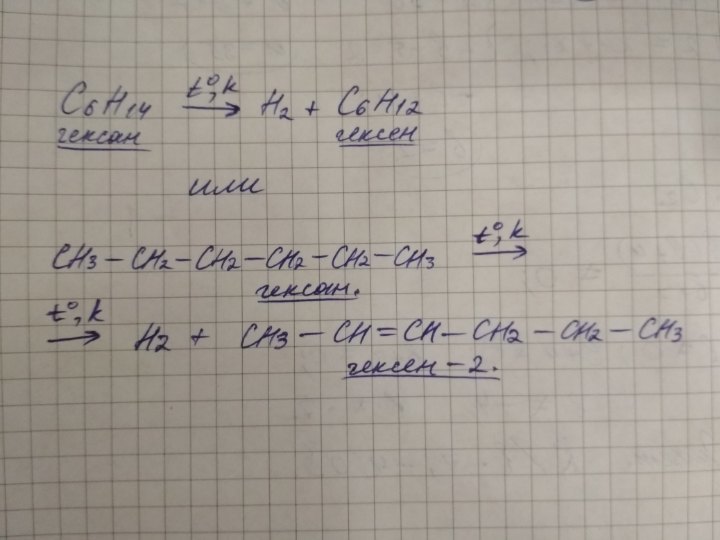 t°, k
C₆H₁₄ → H₂ + C₆H₁₂
гексан гексен
или
CH₃ – CH₂ – CH₂ – CH₂ – CH₂ – CH₃ t°, k →
гексан.
t°, k → H₂ + CH₃ – CH = CH – CH₂ – CH₂ – CH₃
гексен – 2.